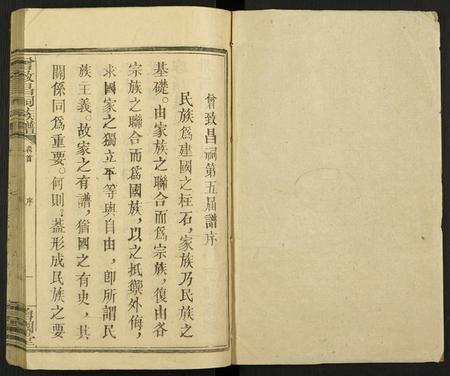 曾致昌祠第五屆譜序
民族爲建國之柱石，家族乃民族之
基礎。由家族之聯合而爲宗族，復由各
宗族之聯合而爲國族，以之抵禦外侮，
求國家之獨立平等與自由，即所謂民
族主義。故家之有譜，猶國之有史，其
關係同爲重要。何則，蓋形成民族之要
曾致昌祠族譜
卷首
序
一